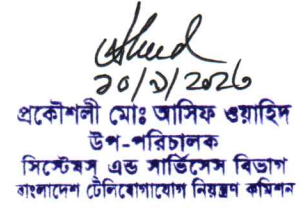 ২০/১/২০২৬
প্রকৌশলী মোঃ আসিফ ওয়াহিদ
উপ-পরিচালক
সিস্টেমস্ এন্ড সার্ভিসেস বিভাগ
বাংলাদেশ টেলিযোগাযোগ নিয়ন্ত্রণ কমিশন